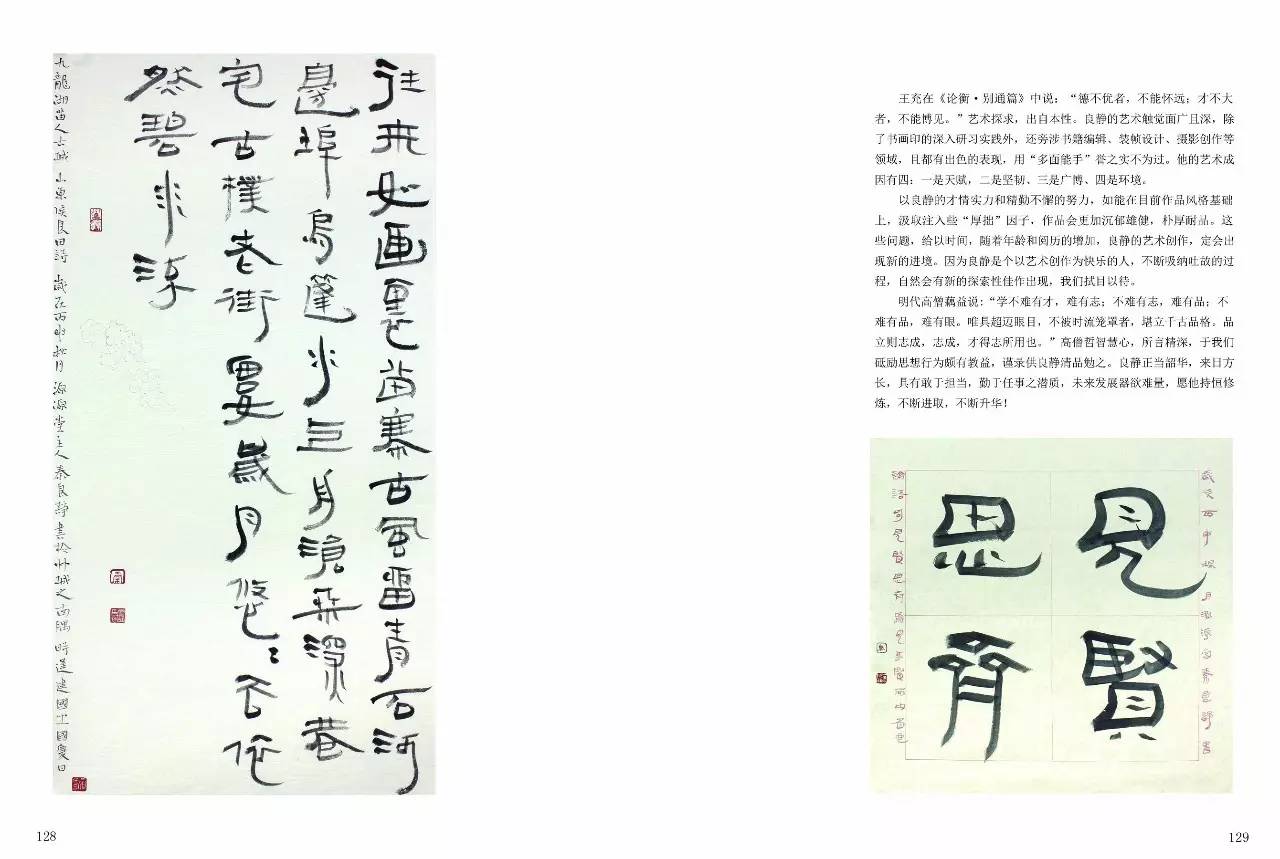 往來如画裏苗寨古風留青石河
邊埠烏篷水上舟滄桑深巷
宅古樸老街婁歲月悠〻去依
然碧水流
山東侯良田詩 歲在丙申秋月 源源堂主人秦良静書於州城之南隅 時逢建國 國慶日
128
王充在《论衡·别通篇》中说:“德不优者,不能怀远;才不大
者,不能博见。”艺术探求,出自本性。良静的艺术触觉面广且深,除
了书画印的深入研习实践外,还旁涉书籍编辑、装帧设计、摄影创作等
领域,且都有出色的表现,用“多面能手”誉之实不为过。他的艺术成
因有四:一是天赋,二是坚韧、三是广博、四是环境。
以良静的才情实力和精勤不懈的努力,如能在目前作品风格基础
上,汲取注入些“厚拙”因子,作品会更加沉郁雄健,朴厚耐品。这
些问题,给以时间,随着年龄和阅历的增加,良静的艺术创作,定会出
现新的进境。因为良静是个以艺术创作为快乐的人,不断吸纳吐故的过
程,自然会有新的探索性佳作出现,我们拭目以待。
明代高僧藕益说:“学不难有才,难有志;不难有志,难有品;不
难有品,难有眼。唯具超迈眼目,不被时流笼罩者,堪立千古品格。品
立则志成,志成,才得志所用也。”高僧哲智慧心,所言精深,于我们
砥励思想行为颇有教益,谨录供良静清品勉之。良静正当韶华,来日方
长,具有敢于担当,勤于任事之潜质,未来发展器欲难量,愿他持恒修
炼,不断进取,不断升华!
見賢
思齊
見賢思齊焉見不賢而内自省也
129